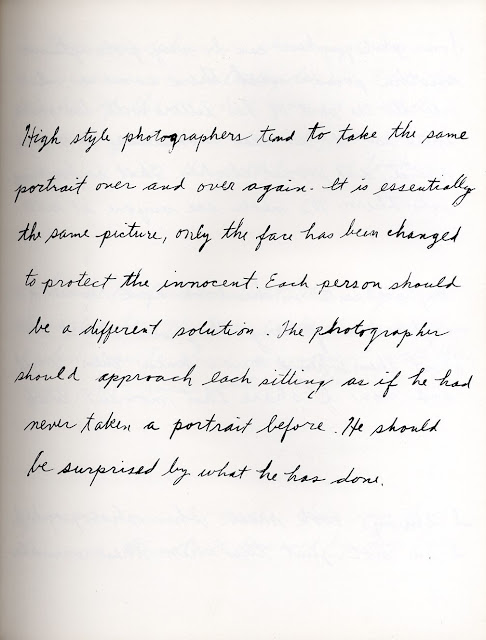 High style photographers tend to take the same
portrait over and over again. It is essentially
the same picture, only the face has been changed
to protect the innocent. Each person should
be a different solution. The photographer
should approach each sitting as if he had
never taken a portrait before. He should
be surprised by what he has done.